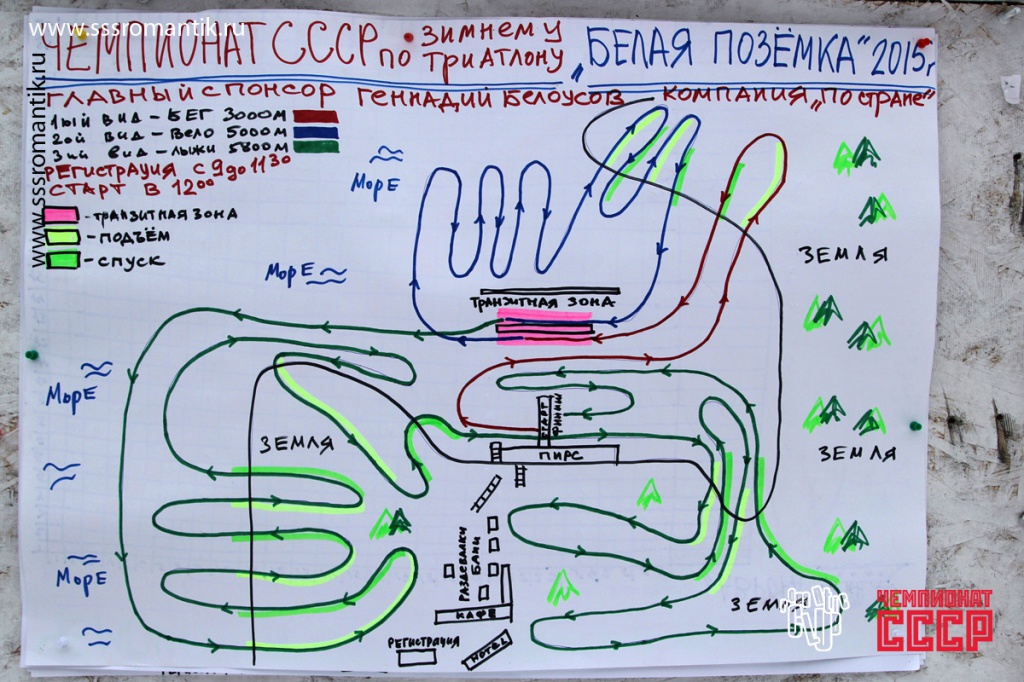 www.sssromantik.ru
ЧЕМПИОНАТ СССР ПО ЗИМНЕМУ ТРИАТЛОНУ „БЕЛАЯ ПОЗЁМКА“ 2015г
www.sssromantik.ru
ГЛАВНЫЙ СПОНСОР ГЕННАДИЙ БЕЛОУСОВ КОМПАНИЯ „ПО СТРАНЕ“
1ый ВИД – БЕГ 3000М
2ой ВИД – ВЕЛО 5000М
3ий ВИД – ЛЫЖИ 5800М
РЕГИСТРАЦИЯ С 9 до 11 30
СТАРТ В 12 00
- ТРАНЗИТНАЯ ЗОНА
- ПОДЪЁМ
- СПУСК
МОРЕ
ЗЕМЛЯ
МОРЕ
ТРАНЗИТНАЯ ЗОНА
МОРЕ
СТАРТ
ФИНИШ
ЗЕМЛЯ
ПИРС
ЗЕМЛЯ
РАЗДЕВАЛКИ
БАНИ
МОРЕ
КАФЕ
ЗЕМЛЯ
РЕГИСТРАЦИЯ
HOTEL
ЧЕМПИОНАТ
СССР